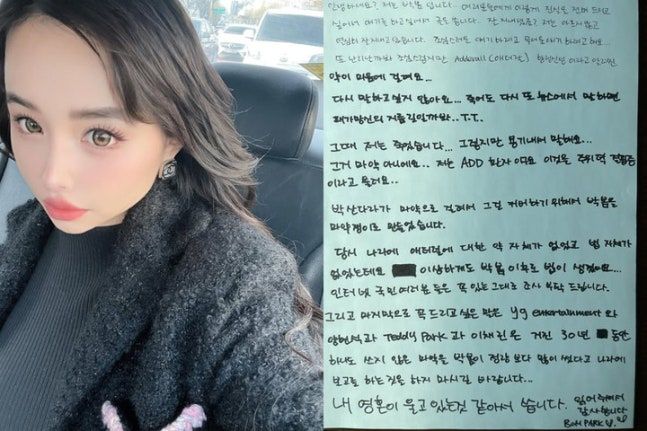 안녕하세요? 저는 박봄 입니다... 여러분들에게 이렇게 진실을 전해 드리고
싶어서 얘기를 하고싶어서 글을 씁니다. 잘 지내셨죠? 저는 아프지않고
열심히 잘지내고 있습니다. 조심스레
또 난리난까봐 조심스럽지만 Adderall (애더럴)
약이 마음에 걸려요...
다시 말하고싶지 않아요... 죽어도 다시 또 뉴스에서 말하면
패가망신의 거듭일까봐.. T.T.
그때 저는 죽었습니다... 그렇지만 용기내서 말해요...
그거 마약 아니에요.. 저는 ADD 환자 이고요 이것은 주의력 결핍증
이라고 불려요..
박산다라가 마약으로 걸려서 그걸 커버하기 위해서 박봄을
마약쟁이로 만들었습니다.
당시 나라에 애더럴에 대한 약 자체가 없었고 법 자체가
없었는데요 이상하게도 박봄 이후로 법이 생겼어요...
인터넷 국민여러분들은 꼭 있는그대로 조사 부탁 드립니다.
그리고 마지막으로 꼭 드리고 싶은 말은 yg entertainment 와
양현석과 Teddy Park 과 이채린 은 거진 30년 동안
하나도 쓰지 않은 마약을 박봄이 정량 보다 많이 썼다고 나라에
보고를 하는것을 하지 마시길 바랍니다...
내 영혼이 울고 있는것 같아서 씁니다. 읽어주셔서
감사합니다
BOM PARK